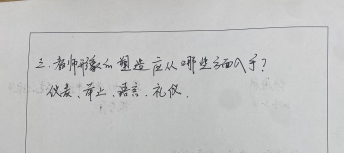 三.教师形象的塑造应从哪些方面入手?
仪表、举止、语言、礼仪.